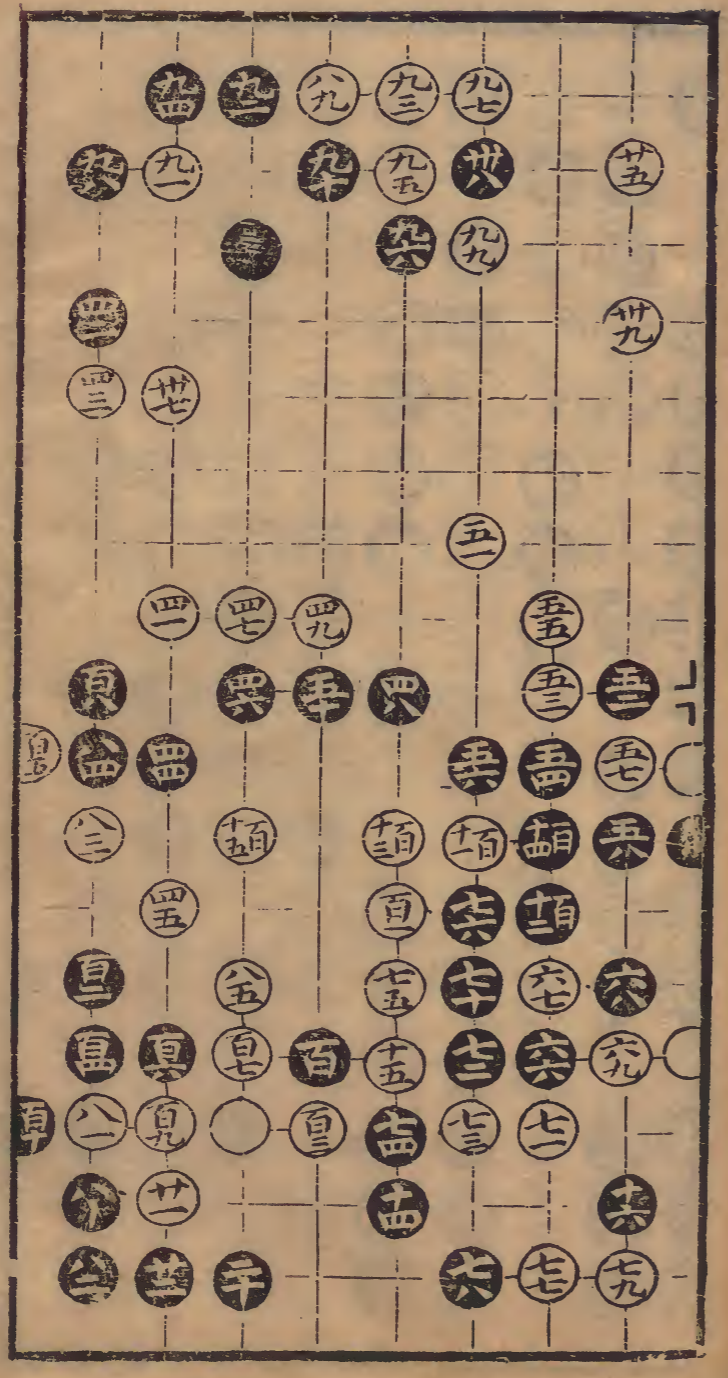 九四 九二 八九 九三 九七
九八 九一 九十 九五 卅八 廿五
九六 九九
四二 卅九
四三 卅七
五一
四一 四七 四九 五五
百八 四六 五十 四八 五三 五二
八四 四四 五六 五四 五七
八三 百十五 百十三 百十一 百十四 五八
四五 百一 七六 百十二
百二 八五 七五 七十 六七 六八
百四 百六 百七 百 十五 七二 六六 六九
百十 八一 百九 百三 七四 七三 七一
廿一 十四 十六
八二 廿二 二十 七八 七七 七九